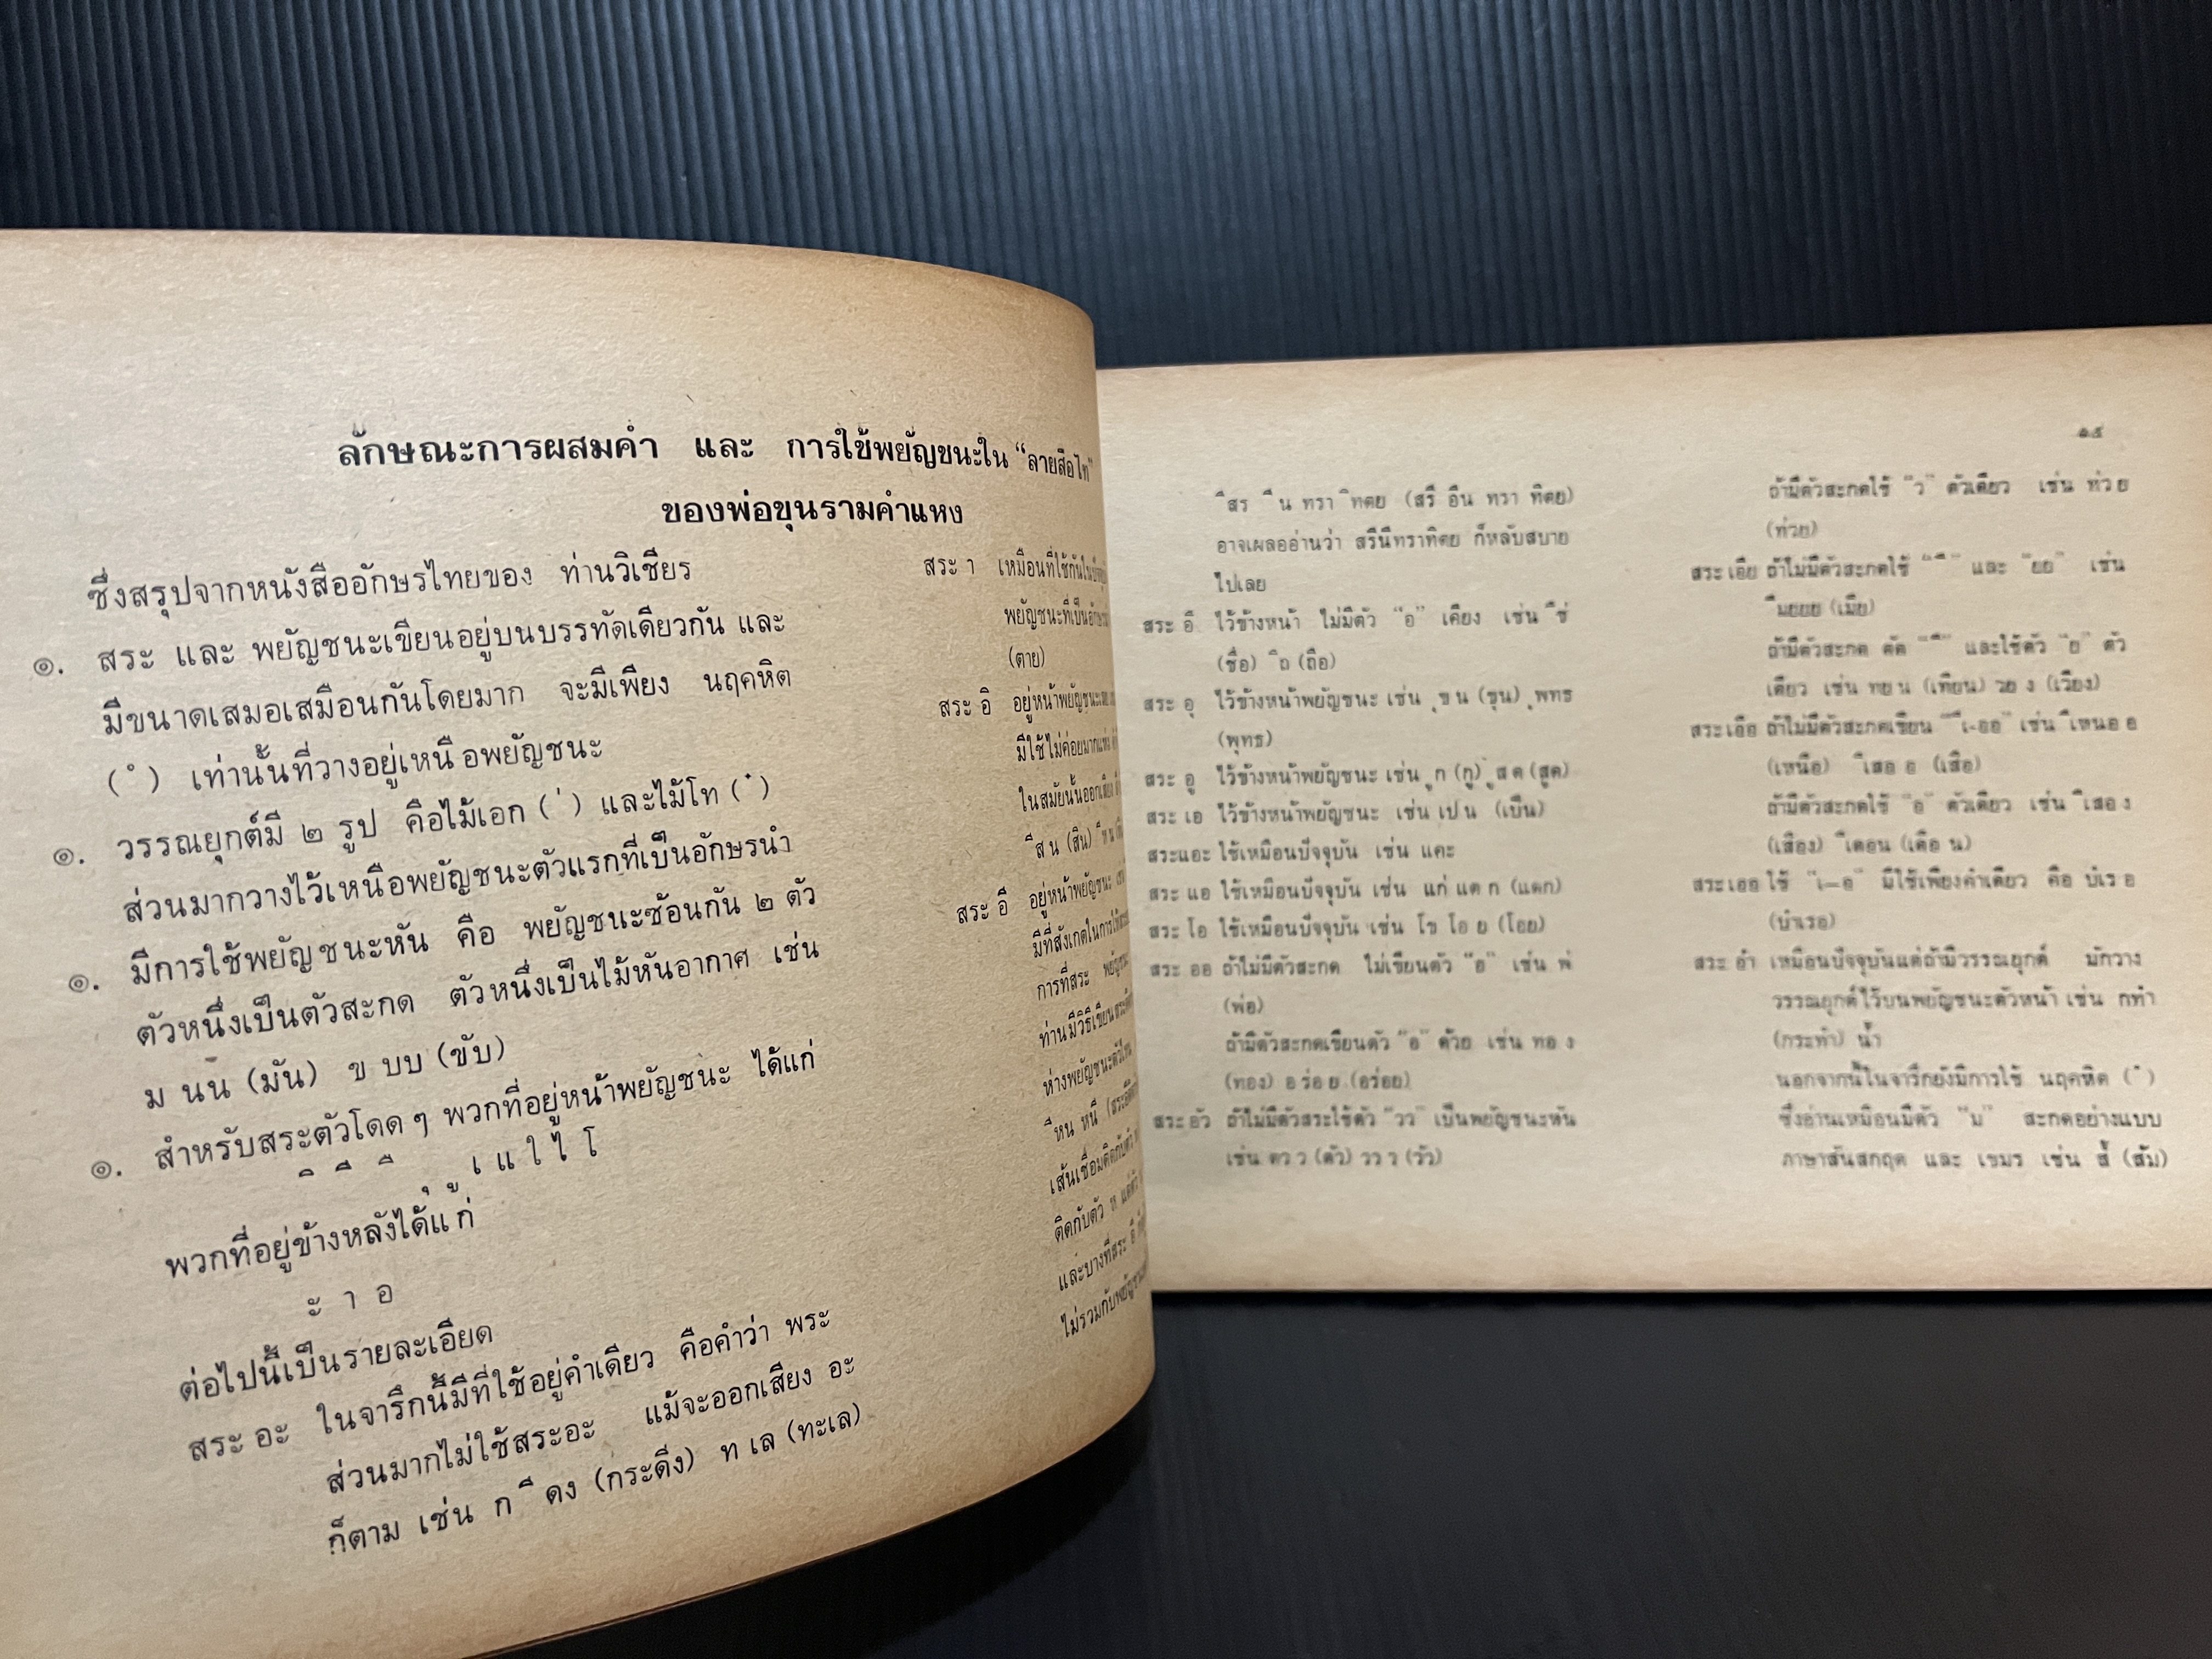 ลักษณะการผสมคำ และ การใช้พยัญชนะใน “ลายสือไท”
ของพ่อขุนรามคำแหง
ซึ่งสรุปจากหนังสืออักษรไทยของ ท่านวิเชียร
๑. สระ และ พยัญชนะเขียนอยู่บนบรรทัดเดียวกัน และ
มีขนาดเสมอเสมือนกันโดยมาก จะมีเพียง นฤคหิต
( ํ ) เท่านั้นที่วางอยู่เหนือพยัญชนะ
๑. วรรณยุกต์มี ๒ รูป คือไม้เอก ( ่ ) และไม้โท ( ๋ )
ส่วนมากวางไว้เหนือพยัญชนะตัวแรกที่เป็นอักษรนำ
๑. มีการใช้พยัญชนะหัน คือ พยัญชนะซ้อนกัน ๒ ตัว
ตัวหนึ่งเป็นตัวสะกด ตัวหนึ่งเป็นไม้หันอากาศ เช่น
ม นน (มัน) ข บบ (ขับ)
๑. สำหรับสระตัวโดด ๆ พวกที่อยู่หน้าพยัญชนะ ได้แก่
 ิ  ี  ื  ุ  ู เ แ ใ ไ โ
พวกที่อยู่ข้างหลังได้แก่
ะ า อ
ต่อไปนี้เป็นรายละเอียด
สระ อะ ในจารึกนี้มีที่ใช้อยู่คำเดียว คือคำว่า พระ
ส่วนมากไม่ใช้สระอะ แม้จะออกเสียง อะ
ก็ตาม เช่น ก ี ดง (กระดึง) ท เล (ทะเล)
สระ า เหมือนที่ใช้กันใน
พยัญชนะที่เป็น
(ตาย)
สระ อิ อยู่หน้าพยัญชนะ
มีใช้ไม่ค่อยมาก
ในสมัยนั้นออกเสียง
 ี ส น (สิน)
สระ อี อยู่หน้าพยัญชนะ
มีที่สังเกตในการ
การที่สระ
ท่านมีวิธีเขียนสระ
ห่างพยัญชนะ
 ี หน หนี
เส้นเชื่อมติดกับตัว
ติดกับตัว ห
และบางที่สระ อี
ไม่รวมกับพยัญชนะ
๑๕
 ี สร ี น ทรา ิ ทตย (สรี อีน ทรา ทิตย)
อาจเผลออ่านว่า สรีนีทราทิตย ก็หลับสบาย
ไปเลย
สระ อื ไว้ข้างหน้า ไม่มีตัว “อ” เคียง เช่น ื ช่
(ชื่อ) ื ถ (ถือ)
สระ อุ ไว้ข้างหน้าพยัญชนะ เช่น ุ ข น (ขุน) ุ พทธ
(พุทธ)
สระ อู ไว้ข้างหน้าพยัญชนะ เช่น ู ก (กู) ู ส ด (สูด)
สระ เอ ไว้ข้างหน้าพยัญชนะ เช่น เป น (เป็น)
สระแอะ ใช้เหมือนปัจจุบัน เช่น แคะ
สระ แอ ใช้เหมือนปัจจุบัน เช่น แก่ แต ก (แตก)
สระ โอ ใช้เหมือนปัจจุบัน เช่น โข โอ ย (โอย)
สระ ออ ถ้าไม่มีตัวสะกด ไม่เขียนตัว “อ” เช่น พ่
(พ่อ)
ถ้ามีตัวสะกดเขียนตัว “อ” ด้วย เช่น ทอ ง
(ทอง) อ ร่อ ย (อร่อย)
สระ อัว ถ้าไม่มีตัวสระใช้ตัว “วว” เป็นพยัญชนะหัน
เช่น ตว ว (ตัว) วว ว (วัว)
ถ้ามีตัวสะกดใช้ “ว” ตัวเดียว เช่น ท่ว ย
(ท่วย)
สระ เอีย ถ้าไม่มีตัวสะกดใช้ “ ี ” และ “ยย” เช่น
 ี มยยย (เมีย)
ถ้ามีตัวสะกด ตัด “ ี ” และใช้ตัว “ย” ตัว
เดียว เช่น ทย น (เทียน) วย ง (เวียง)
สระ เอือ ถ้าไม่มีตัวสะกดเขียน “ ืเ-ออ” เช่น ืเหนอ อ
(เหนือ) ืเสอ อ (เสือ)
ถ้ามีตัวสะกดใช้ “อ” ตัวเดียว เช่น ืเสอ ง
(เสือง) ืเดอน (เดือ น)
สระ เออ ใช้ “เ–อ” มีใช้เพียงคำเดียว คือ บํเร อ
(บำเรอ)
สระ อำ เหมือนปัจจุบันแต่ถ้ามีวรรณยุกต์ มักวาง
วรรณยุกต์ไว้บนพยัญชนะตัวหน้า เช่น กทำ
(กระทำ) น้ำ
นอกจากนี้ในจารึกยังมีการใช้ นฤคหิต ( ํ )
ซึ่งอ่านเหมือนมีตัว “ม” สะกดอย่างแบบ
ภาษาสันสกฤต และ เขมร เช่น สํ้ (ส้ม)